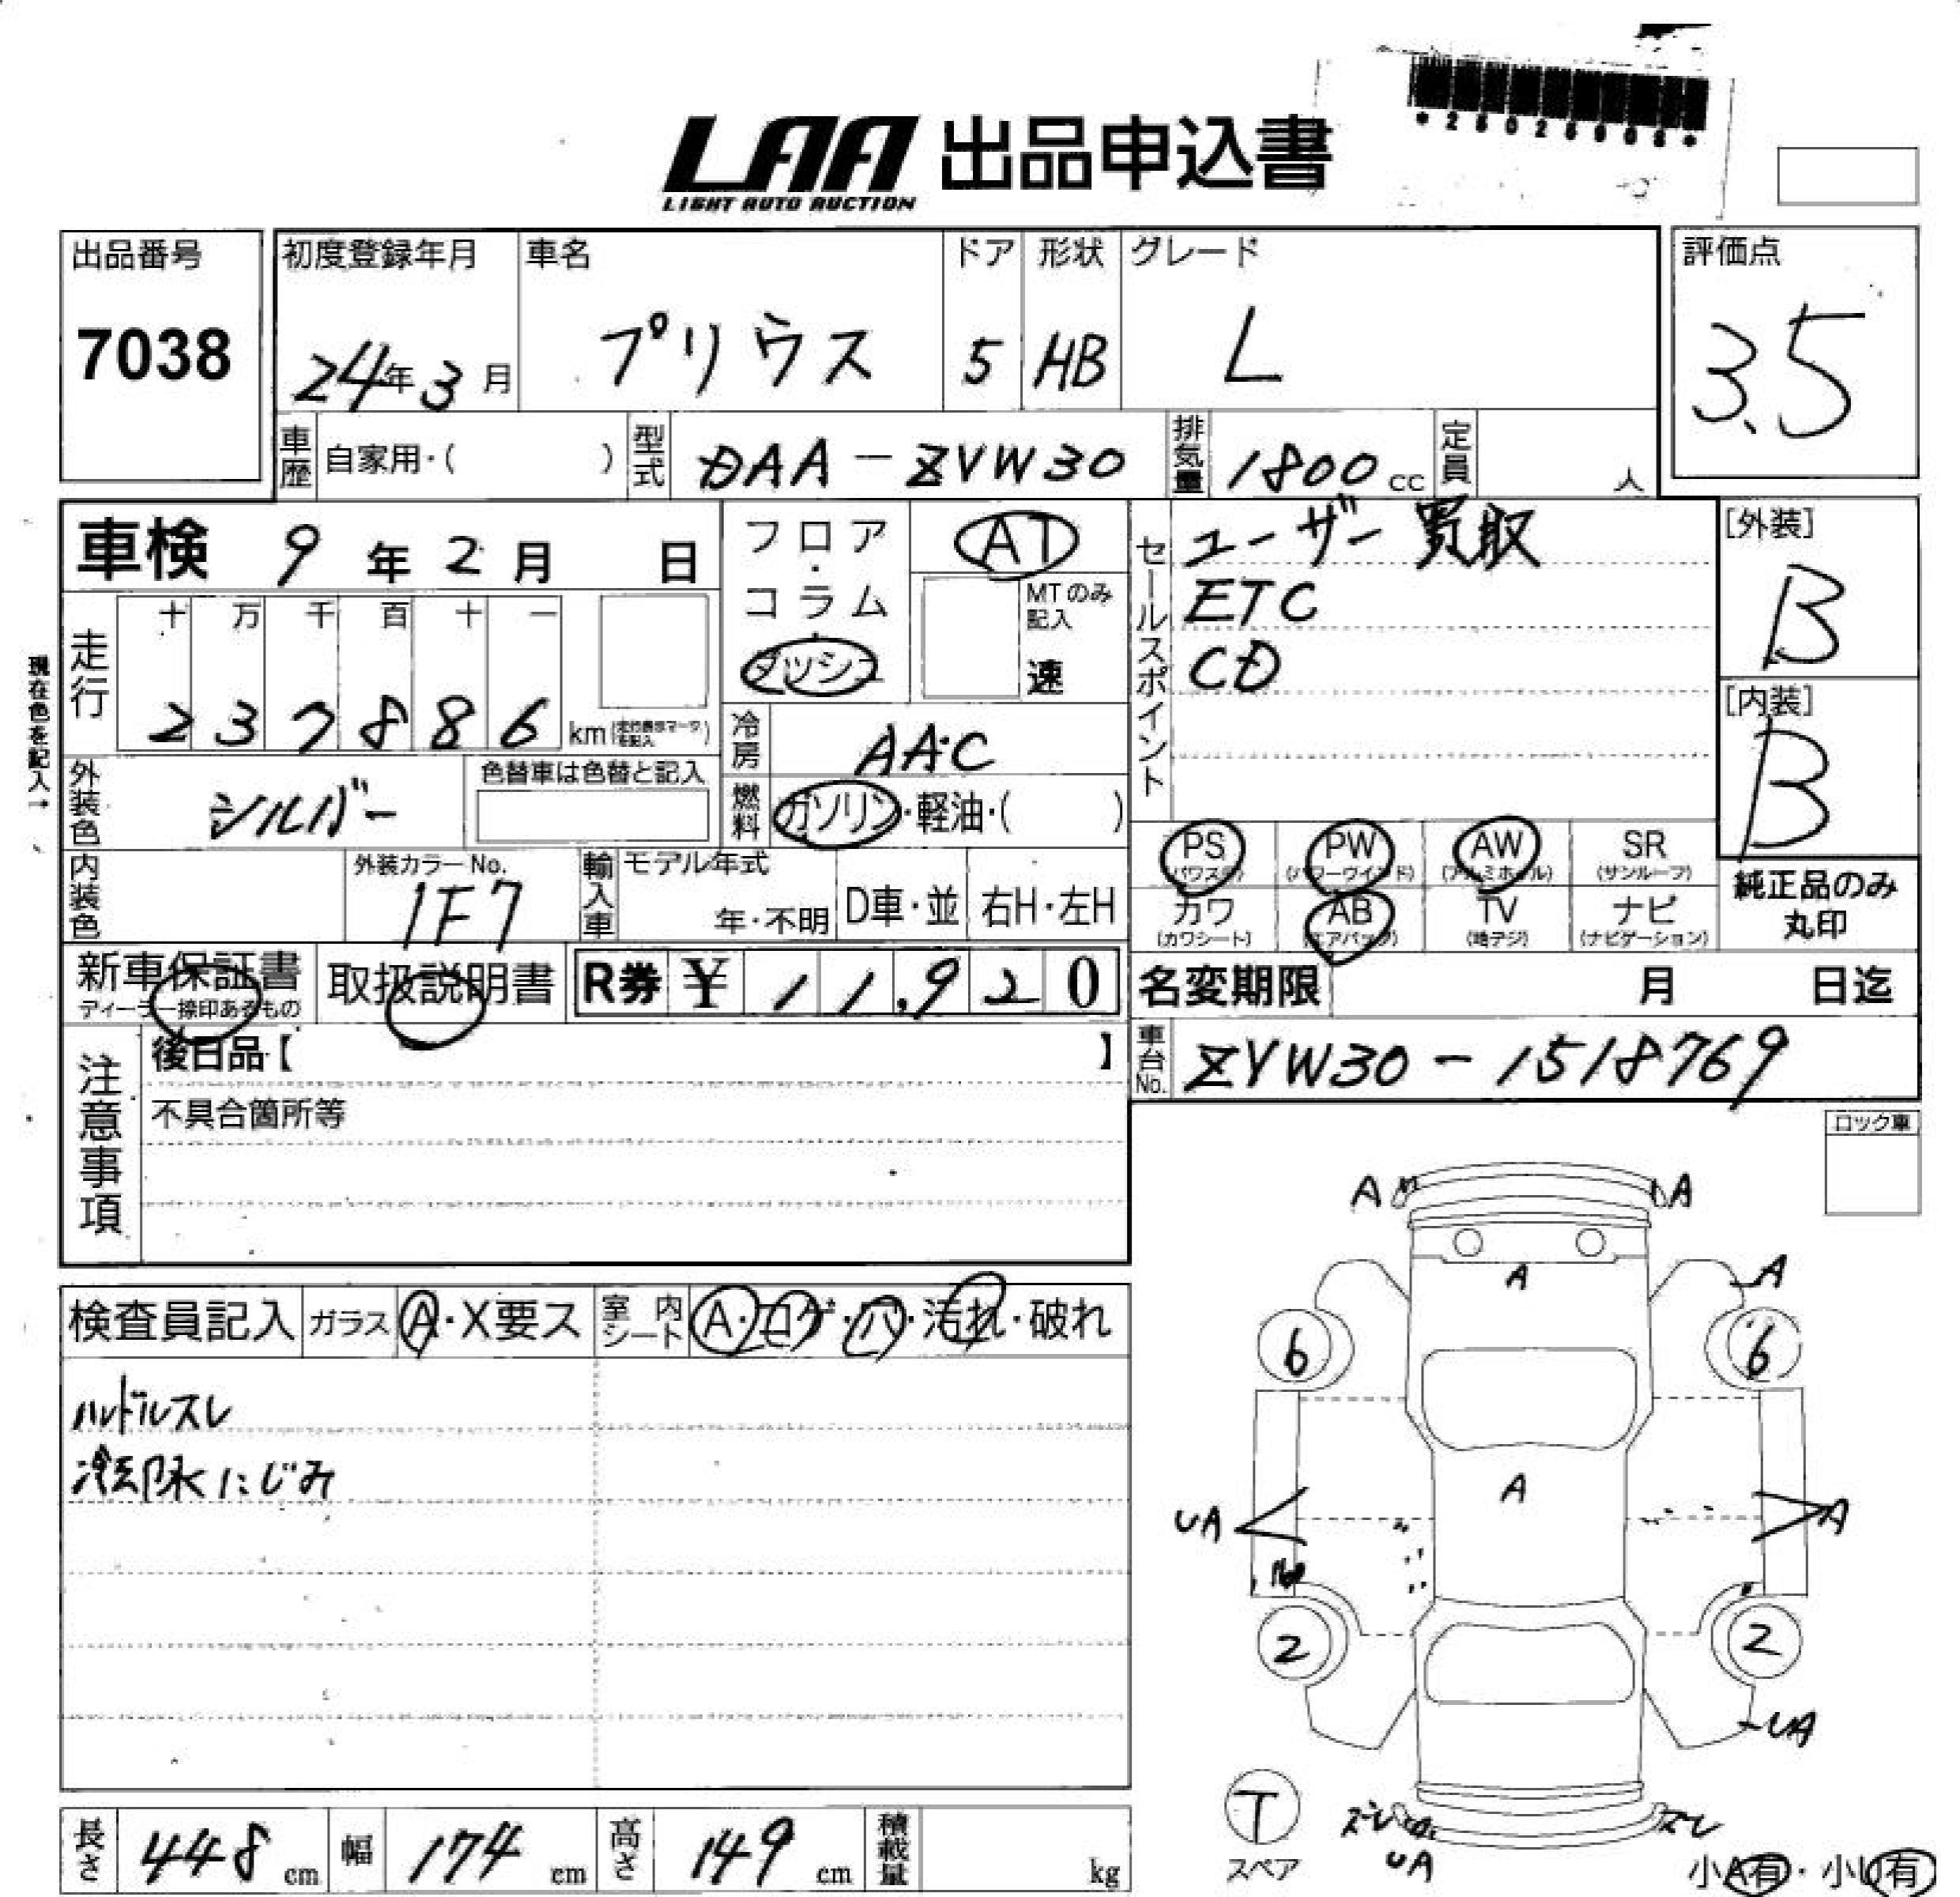 *28028908*
LAA 出品申込書
LIGHT AUTO AUCTION
出品番号
7038
初度登録年月
24年3月
車名
プリウス
ドア
5
形状
HB
グレード
L
評価点
3.5
車歴 自家用・( )
型式 DAA-ZVW30
排気量 1800cc
定員 人
車検 9年2月 日
フロア・コラム
ダッシュ
AT
MTのみ記入
速
セールスポイント
ユーザー買取
ETC
CD
[外装]
B
[内装]
B
現在色を記入→
走行
十 万 千 百 十 一
2 3 7 8 8 6 km
冷房 AAC
外装色 シルバー
色替車は色替と記入
燃料 ガソリン・軽油・( )
内装色
外装カラーNo.
1F7
輸入車
モデル年式
年・不明
D車・並
右H・左H
PS
(パワステ)
PW
(パワーウインド)
AW
(アルミホイル)
SR
(サンルーフ)
カワ
(カワシート)
AB
(エアバック)
TV
(地デジ)
ナビ
(ナビゲーション)
純正品のみ
丸印
新車保証書
ディーラー捺印あるもの
取扱説明書
R券 ¥ 11,920
名変期限 月 日迄
注意事項
後日品【 】
不具合箇所等
車台No. ZVW30-1518769
ロック車
検査員記入
ガラス A・X要ス
室内シート A・コゲ・穴・汚れ・破れ
ハンドルスレ
冷却水にじみ
A A
A A
6 6
A
UA A
2 2
UA
T
スペア
ズレ ズレ
UA
小A有・小U有
長さ 448cm
幅 174cm
高さ 149cm
積載量 kg